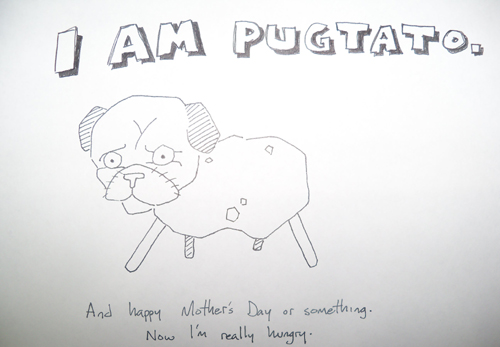 I AM PUGTATO.
And happy Mother's Day or something.
Now I'm really hungry.